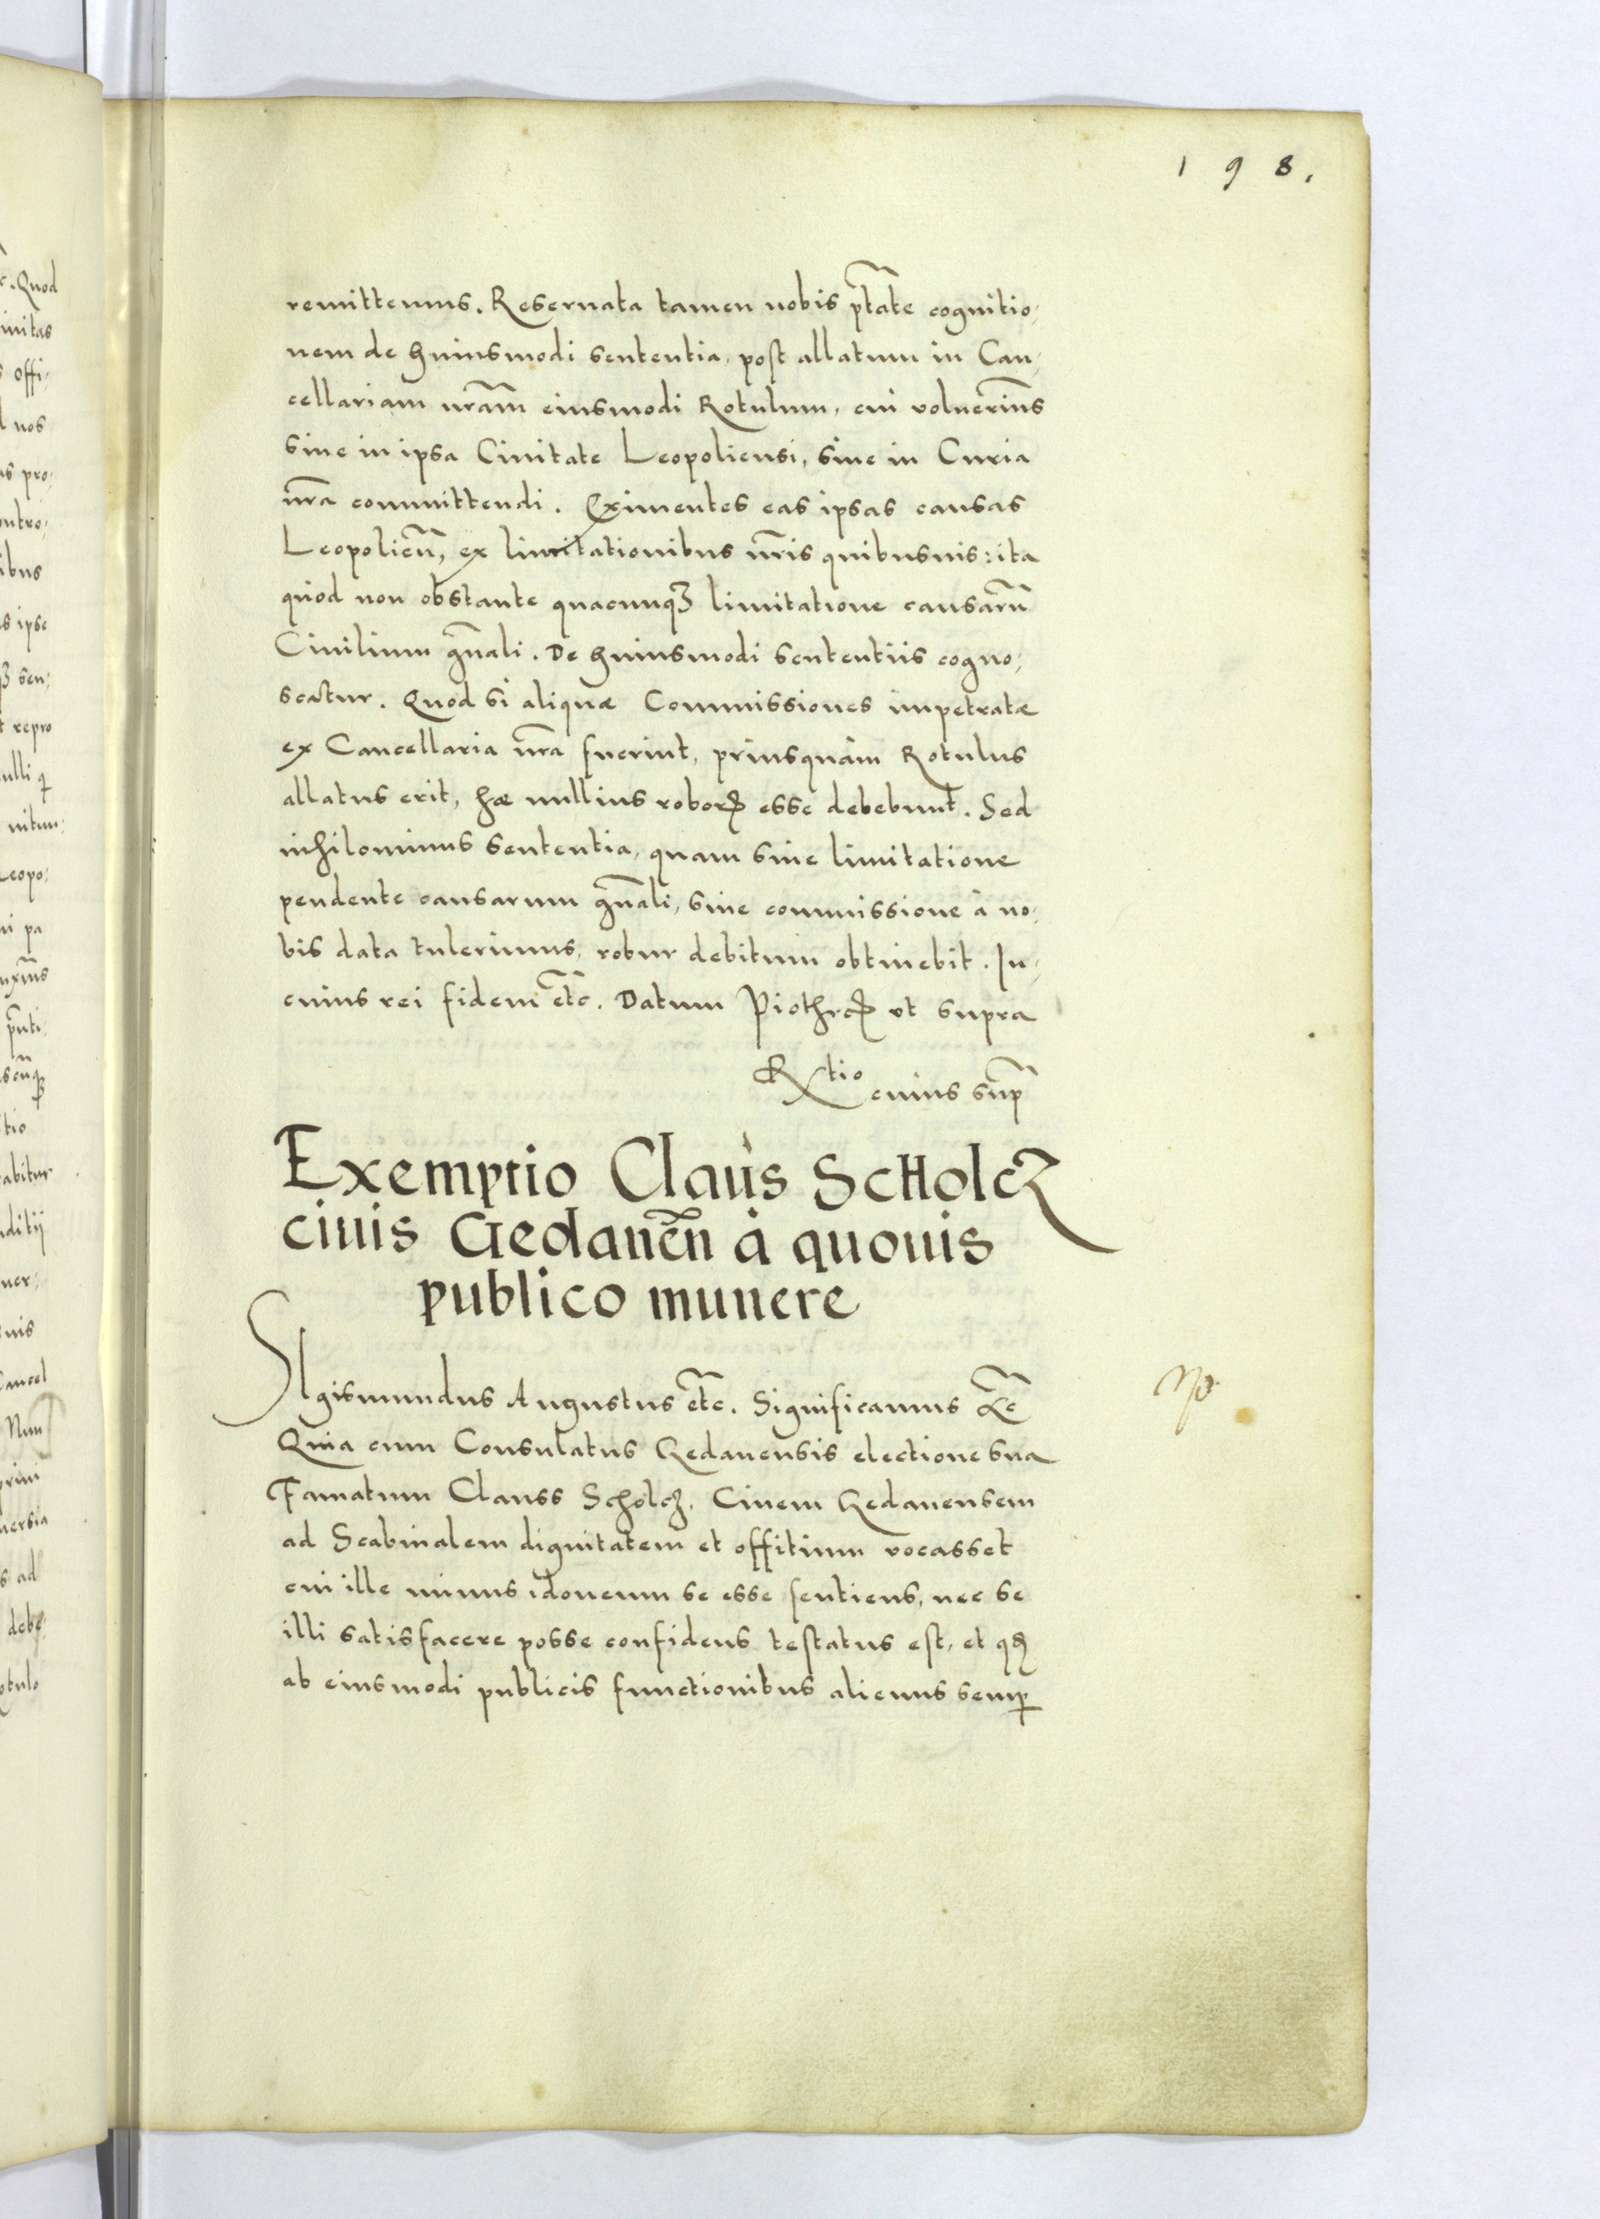 198.
remittemus. Reseruata tamen nobis ptãte cognitio,
nem de huiusmodi sententia, post allatum in Can,
cellariam nrãm eiusmodi Rotulum, cui voluerims̃
siue in ipsa Ciuitate Leopoliensi, siue in Curia
nrã committendi. Eximentes eas ipsas causas
Leopolieñ, ex limitationibus nrĩs quibusuis: ita
quod non obstante quacunqȝ limitatione causarũ
Ciuilium gnãli. De huiusmodi sententiis cogno,
scatur. Quod si aliquæ Commissiones impetratæ
ex Cancellaria nrã fuerint, priusquàm Rotulus
allatus erit, hæ nullius roboris esse debebunt. Sed
nihilominus sententia, quam siue limitatione
pendente causarum gnãli, siue commissione à no,
bis data tulerimus, robur debitum obtinebit. In,
cuius rei fidem etc̃. Datum Piothrcoviae vt supra
Rtio cuius sup̃
Exemptio Claus Scholcz
ciuis Gedaneñ à quouis
publico munere
SIgismundus Augustus etc̃. Significamus &c̃
Quia cum Consulatus Gedanensis electione sua
Famatum Clauss Scholcz. Ciuem Gedanensem
ad Scabinalem dignitatem et offitium vocasset
cui ille minus idoneum se esse sentiens, nec se
illi satisfacere posse confidens testatus est, et qd
ab eiusmodi publicis functionibus alienus semp